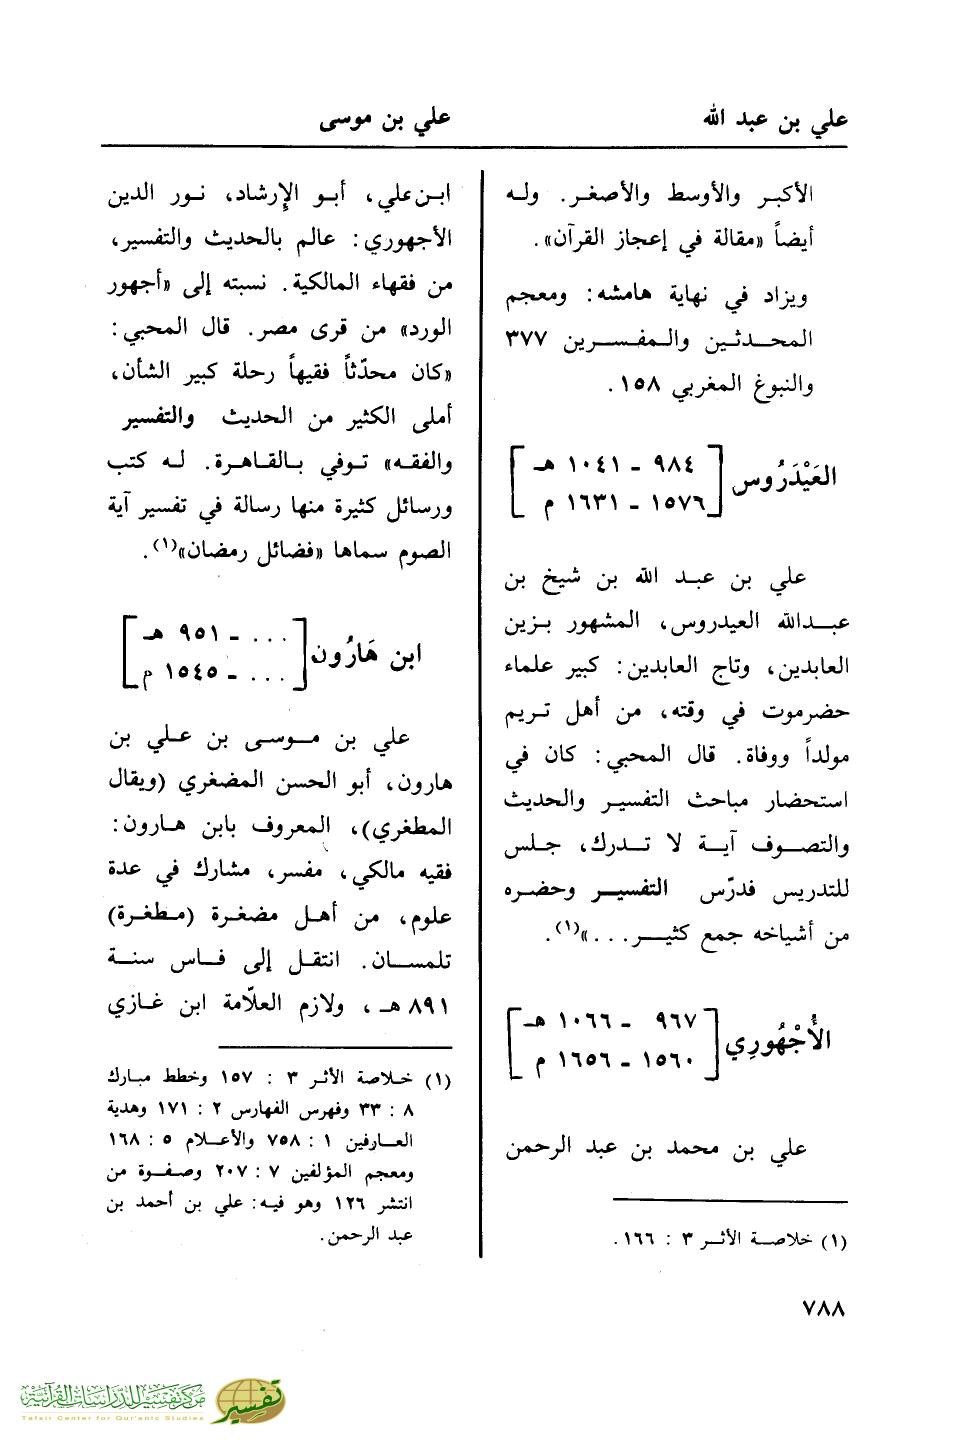 علي بن عبد الله
علي بن موسى
الأكبر والأوسط والأصغر. وله
أيضاً «مقالة في إعجاز القرآن».
ويزاد في نهاية هامشه: ومعجم
المحدثين والمفسرين ٣٧٧
والنبوغ المغربي ١٥٨.
العَيْدَرُوس
[٩٨٤ - ١٠٤١ هـ
١٥٧٦ - ١٦٣١ م]
علي بن عبد الله بن شيخ بن
عبدالله العيدروس، المشهور بزين
العابدين، وتاج العابدين: كبير علماء
حضرموت في وقته، من أهل تريم
مولداً ووفاة. قال المحبي: كان في
استحضار مباحث التفسير والحديث
والتصوف آية لا تدرك، جلس
للتدريس فدرّس التفسير وحضره
من أشياخه جمع كثير...»(١).
الأُجْهُورِي
[٩٦٧ - ١٠٦٦ هـ
١٥٦٠ - ١٦٥٦ م]
علي بن محمد بن عبد الرحمن
(١) خلاصة الأثر ٣ : ١٦٦.
ابن علي، أبو الإرشاد، نور الدين
الأجهوري: عالم بالحديث والتفسير،
من فقهاء المالكية. نسبته إلى «أجهور
الورد» من قرى مصر. قال المحبي:
«كان محدّثاً فقيهاً رحلة كبير الشأن،
أملى الكثير من الحديث والتفسير
والفقه» توفي بالقاهرة. له كتب
ورسائل كثيرة منها رسالة في تفسير آية
الصوم سماها «فضائل رمضان»(١).
ابن هَارُون
[... - ٩٥١ هـ
... - ١٥٤٥ م]
علي بن موسى بن علي بن
هارون، أبو الحسن المضغري (ويقال
المطغري)، المعروف بابن هارون:
فقيه مالكي، مفسر، مشارك في عدة
علوم، من أهل مضغرة (مطغرة)
تلمسان. انتقل إلى فاس سنة
٨٩١ هـ، ولازم العلاّمة ابن غازي
(١) خلاصة الأثر ٣ : ١٥٧ وخطط مبارك
٨ : ٣٣ وفهرس الفهارس ٢ : ١٧١ وهدية
العارفين ١ : ٧٥٨ والأعلام ٥ : ١٦٨
ومعجم المؤلفين ٧ : ٢٠٧ وصفوة من
انتشر ١٢٦ وهو فيه: علي بن أحمد بن
عبد الرحمن.
٧٨٨
مركز تفسير للدراسات القرآنية
Tafsir Center for Qur'anic Studies
تفسير